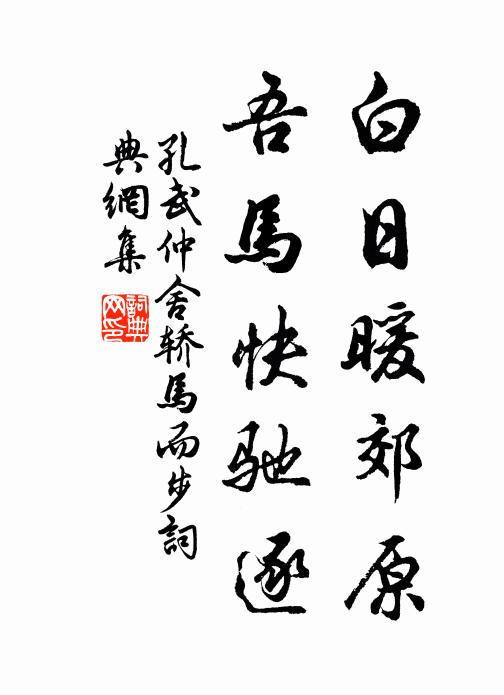 白日暖郊原
吾馬快馳逐
孔武仲舍轿馬而步詞
典網集
詞典网印